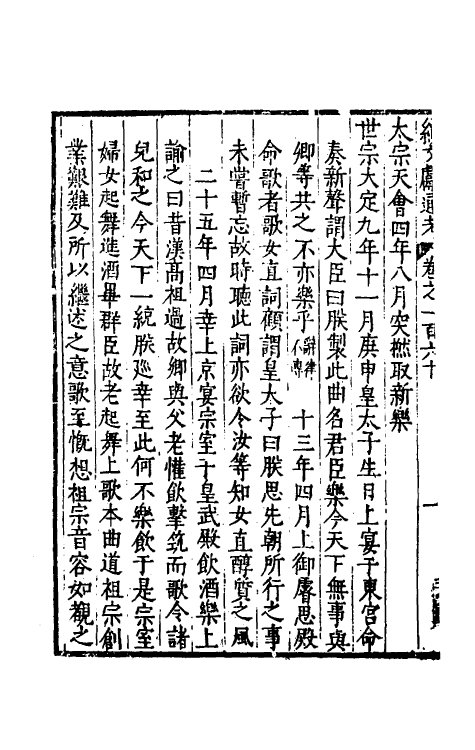 續文獻通考 卷之一百六十
太宗天會四年八月突撚取新樂
世宗大定九年十一月庚申皇太子生日上宴于東宮命
奏新聲謂大臣曰朕製此曲名君臣樂今天下無事與
卿等共之不亦樂乎 辭律不傳 十三年四月上御睿思殿
命歌者歌女直詞顧謂皇太子曰朕思先朝所行之事
未嘗暫忘故時聽此詞亦欲令汝等知女直醇質之風
二十五年四月幸上京宴宗室于皇武殿飲酒樂上
諭之曰昔漢高祖過故鄉與父老懽飲擊筑而歌令諸
兒和之今天下一統朕巡幸至此何不樂飲于是宗室
婦女起舞進酒畢群臣故老起舞上歌本曲道祖宗創
業艱難及所以繼述之意歌至慨想祖宗音容如覩之